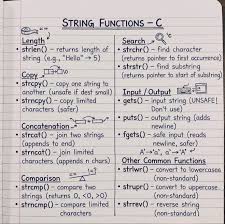 STRING FUNCTIONS – C
Length
• strlen() – returns length
of string (e.g., "Hello" → 5)
Copy
• strcpy() – copy one string to
another (unsafe if dest small)
• strncpy() – copy limited
characters (safer)
Concatenation
• strcat() – join two strings
(appends to end)
• strncat() – join limited
characters (appends n chars)
Comparison
• strcmp() – compare two
strings (returns 0, <0, >0)
• strncmp() – compare limited
characters
Search
• strchr() – find character
(returns pointer to first occurrence)
• strstr() – find substring
(returns pointer to start of substring)
Input / Output
• gets() – input string (UNSAFE!
Don't use)
• puts() – output string (adds
newline)
• fgets() – safe input (reads
newline, safer)
Other Common Functions
• strlwr() – convert to lowercase
(non-standard)
• strupr() – convert to uppercase
(non-standard)
• strrev() – reverse string
(non-standard)